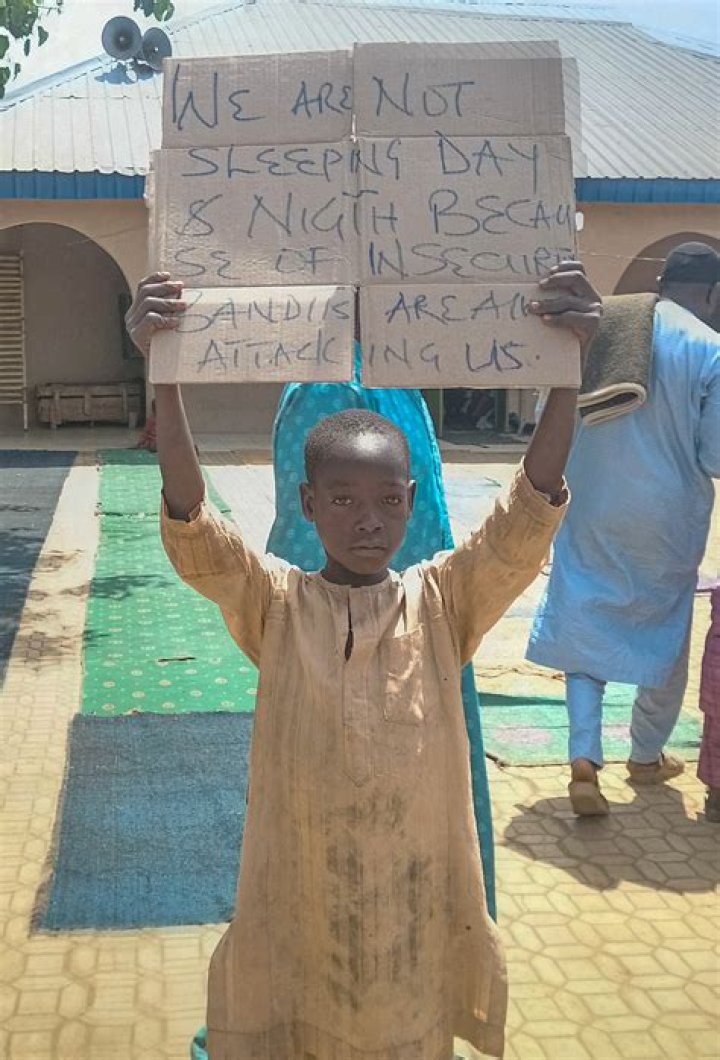 WE ARE NOT
SLEEPING DAY
& NIGTH BECAU
SE OF INSECURI
BANDIIS ARE
ATTACKING US.